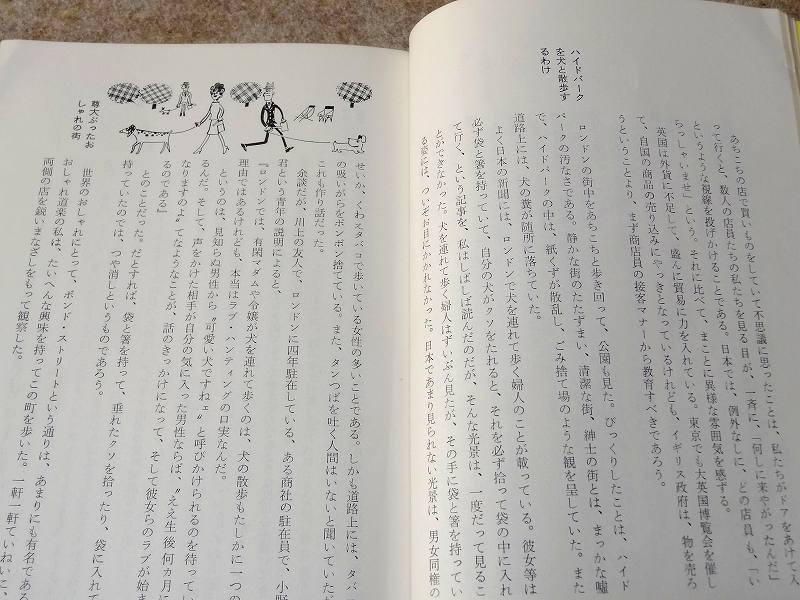 あちこちの店で買いものをしていて不思議に思ったことは、私たちがドアをあけて入
って行くと、数人の店員たちの私たちを見る目が、一斉に、「何しに来やがったんだ」
というような視線を投げかけることである。日本では、例外なしに、どの店員も、「い
らっしゃいませ」という。それに比べて、まことに異様な雰囲気を感ずる。
英国は外貨に不足して、盛んに貿易に力を入れている。東京でも大英国博覧会を催し
て、自国の商品の売り込みにやっきとなっているけれども、イギリス政府は、物を売ろ
うということより、まず商店員の接客マナーから教育すべきであろう。
ハイドパーク
を犬と散歩す
るわけ
ロンドンの街中をあちこちと歩き回って、公園も見た。びっくりしたことは、ハイド
パークの汚なさである。静かな街のたたずまい、清潔な街、紳士の街とは、まっかな嘘
で、ハイドパークの中は、紙くずが散乱し、ごみ捨て場のような観を呈していた。また
道路上には、犬の糞が随所に落ちていた。
よく日本の新聞には、ロンドンで犬を連れて歩く婦人のことが載っている。彼女等は
必ず袋と箸を持っていて、自分の犬がクソをたれると、それを必ず拾って袋の中に入れ
て行く、という記事を、私はしばしば読んだのだが、そんな光景は、一度だって見るこ
とができなかった。犬を連れて歩く婦人はずいぶん見たが、その手に袋と箸を持ってい
る姿には、ついぞお目にかかれなかった。日本であまり見られない光景は、男女同権の
せいか、くわえタバコで歩いている女性の多いことである。しかも道路上には、タバ
の吸いがらをポンポン捨てている。また、タンつばを吐く人間はいないと聞いていた
これも作り話だった。
余談だが、川上の友人で、ロンドンに四年駐在している、ある商社の駐在員で、小野
君という青年の説明によると、
『ロンドンでは、有閑マダムや令嬢が犬を連れて歩くのは、犬の散歩もたしかに一つの
理由ではあるけれども、本当はラブ・ハンティングの口実なんだ。
というのは、見知らぬ男性から〝可愛い犬ですねェ〟と呼びかけられるのを待ってい
るんだ。そして、声をかけた相手が自分の気に入った男性ならば、〝ええ生後何カ月に
なりますのよ〟てなようなことが、話のきっかけになって、そして彼女らのラブが始ま
るのである』
とのことだった。だとすれば、袋と箸を持って、垂れたクソを拾ったり、袋に入れて
持っていたのでは、つや消しというものであろう。
尊大ぶったお
しゃれの街
世界のおしゃれにとって、ボンド・ストリートという通りは、あまりにも有名である
おしゃれ道楽の私は、たいへんな興味を持ってこの町を歩いた。一軒一軒ていねいに、
両側の店を鋭いまなざしをもって観察した。